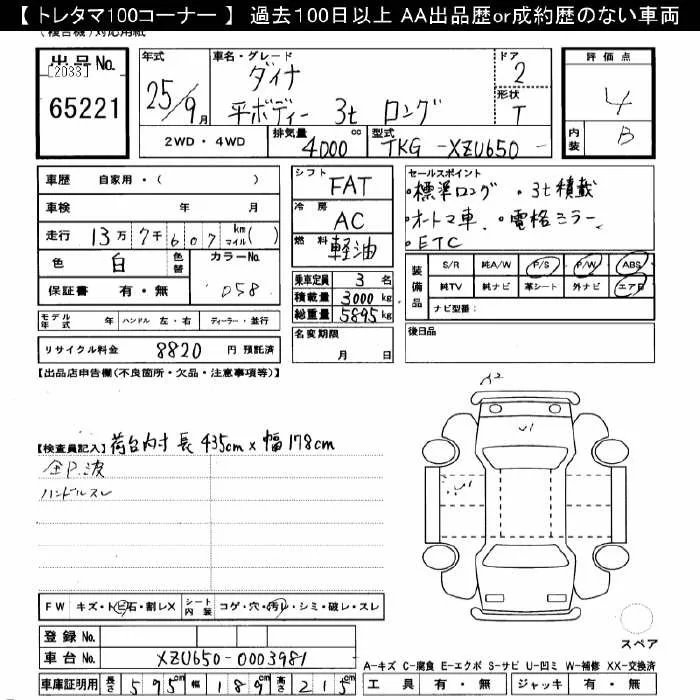 【 トレタマ100コーナー 】 過去100日以上 AA出品歴or成約歴のない車両
(複合機)対応用紙
出品No.
[2033]
65221
年式
25/9月
車名・グレード
ダイナ
平ボディー 3t ロング
ドア
2
形状
T
評価点
4
内装
B
2WD・4WD
排気量
4000cc
型式
TKG-XZU650-
車歴 自家用・( )
車検 年 月
走行 13万7千607 km マイル( )
色 白 色替 カラーNo. 058
保証書 有・無
シフト FAT
冷房 AC
燃料 軽油
乗車定員 3名
積載量 3000kg
総重量 5895kg
セールスポイント
・標準ロング ・3t積載
・オートマ車 ・電格ミラー
・ETC
装備品
S/R 純A/W P/S P/W ABS
純TV 純ナビ 革シート 外ナビ エアB
ナビ型番:
モデル年式 年 ハンドル 左・右 ディーラー・並行
リサイクル料金 8820 円 預託済
名変期限
月 日
後日品
【出品店申告欄(不良箇所・欠品・注意事項等)】
【検査員記入】荷台内寸 長435cm×幅178cm
ハンドルスレ
A2
U1
FW キズ・トビ石・割レX シート内装 コゲ・穴・汚レ・シミ・破レ・スレ
登録No.
車台No. XZU650-0003981
車庫証明用 長さ 595cm 幅 189cm 高さ 215cm
スペア
A-キズ C-腐食 E-エクボ S-サビ U-凹ミ W-補修 XX-交換済
工具 有・無 ジャッキ 有・無